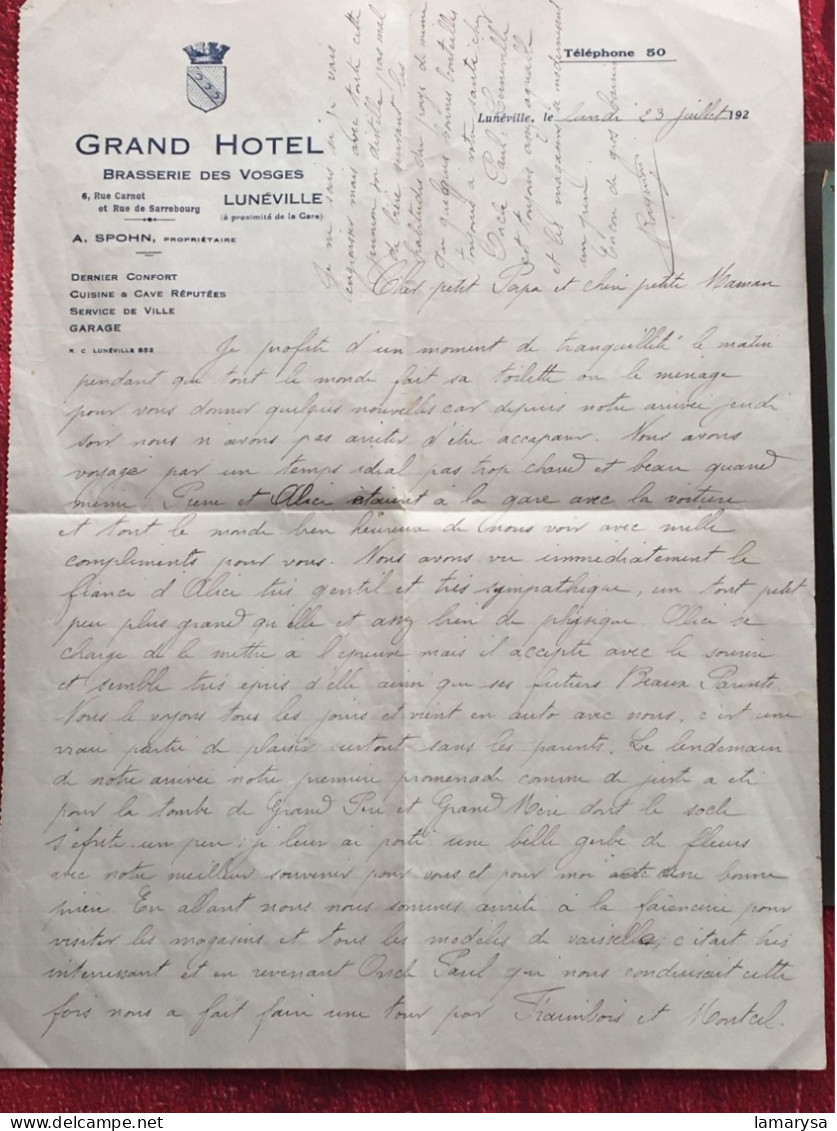 Téléphone 50
Lunéville, le lundi 23 juillet 192
GRAND HOTEL
BRASSERIE DES VOSGES
6, Rue Carnot
et Rue de Sarrebourg
LUNÉVILLE
(à proximité de la Gare)
A. SPOHN, PROPRIÉTAIRE
DERNIER CONFORT
CUISINE & CAVE RÉPUTÉES
SERVICE DE VILLE
GARAGE
R. C. LUNÉVILLE 852
Cher petit Papa et chère petite Maman
Je profite d'un moment de tranquillité le matin
pendant que tout le monde fait sa toilette ou le ménage
pour vous donner quelques nouvelles car depuis notre arrivée jeudi
soir nous n avons pas arrêter d'être accaparer. Nous avons
voyagé par un temps idéal pas trop chaud et beau quand
même. Pierre et Alice étaient à la gare avec la voiture
et tout le monde bien heureux de nous voir avec mille
compliments pour vous. Nous avons vu immédiatement le
fiancé d'Alice très gentil et très sympathique, un tout petit
peu plus grand qu'elle et assez bien de physique. Alice se
charge de le mettre a l'épreuve mais il accepte avec le sourire
et semble très épris d'elle ainsi que ses futurs Beaux Parents.
Nous le voyons tous les jours et vient en auto avec nous. c'est une
vraie partie de plaisir surtout sans les parents. Le lendemain
de notre arrivée notre première promenade comme de juste a été
pour la tombe de Grand Père et Grand Mère dont le socle
s'éfrite un peu; je leur ai porté une belle gerbe de fleurs
avec notre meilleur souvenir pour vous et pour moi une bonne
prière. En allant nous nous sommes arrêté à la faïencerie pour
visiter les magasins et tous les modèles de vaisselle, c'était très
interressant et en revenant Oncle Paul qui nous conduisait cette
fois nous a fait faire une tour par Fraimbois et Montcel.
Je ne sais si je vais
engraisser mais avec toute cette
on distille pas mal
de bière suivant les
habitudes du pays de même
que quelques bonnes bouteilles
toujours a votre santé chez
Oncle Paul. Lunéville
est toujours aussi agréable
et les magasins se modernisent
un peu.
Encore de gros baisers
lamarysa